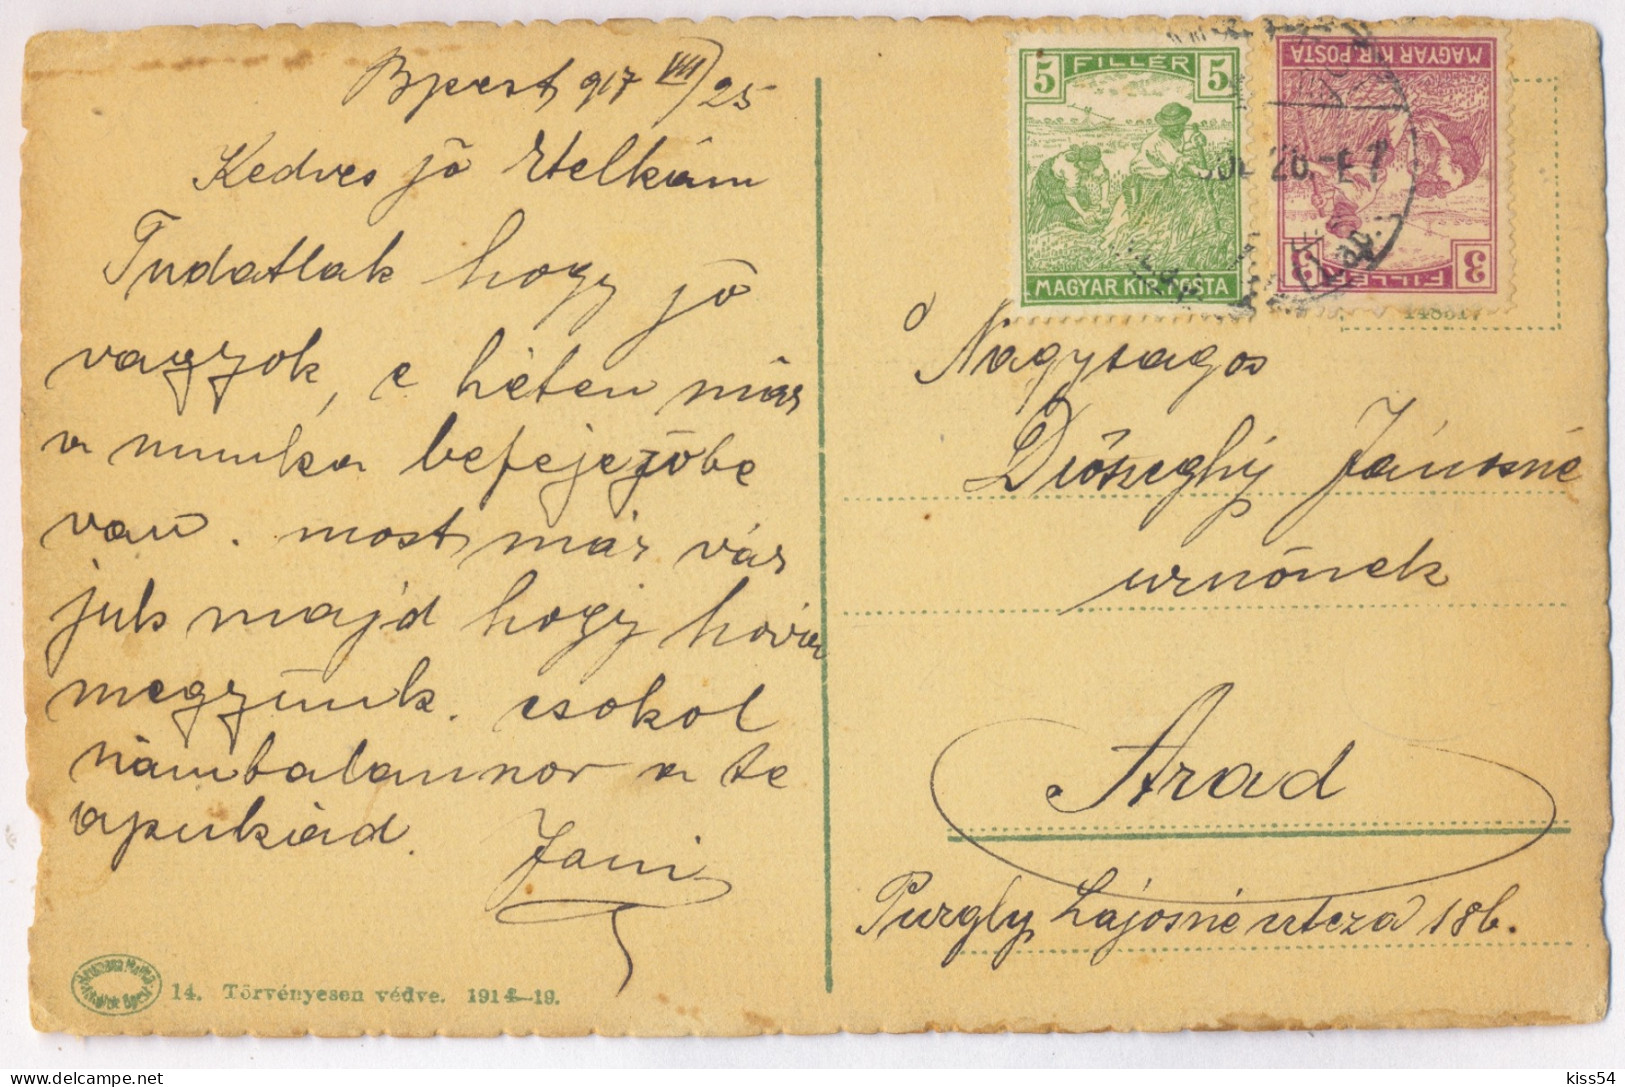 Bpest 917 VII/25
Kedves jó Etelkám
Tudatlak hogy jó
vagyok, e héten már
a munka befejezőbe
van. most már vár
juk majd hogy hova
megyünk. csokol
számtalanszor a te
apukád.
Jani
14. Törvényesen védve. 1914-19.
5 FILLÉR 5
MAGYAR KIR. POSTA
MAGYAR KIR. POSTA
3 FILLÉR 3
JUL 26.
Nagysagos
Diószeghy Jánosné
urnőnek
Arad
Purgly Lajosné utcza 18b.
kiss54